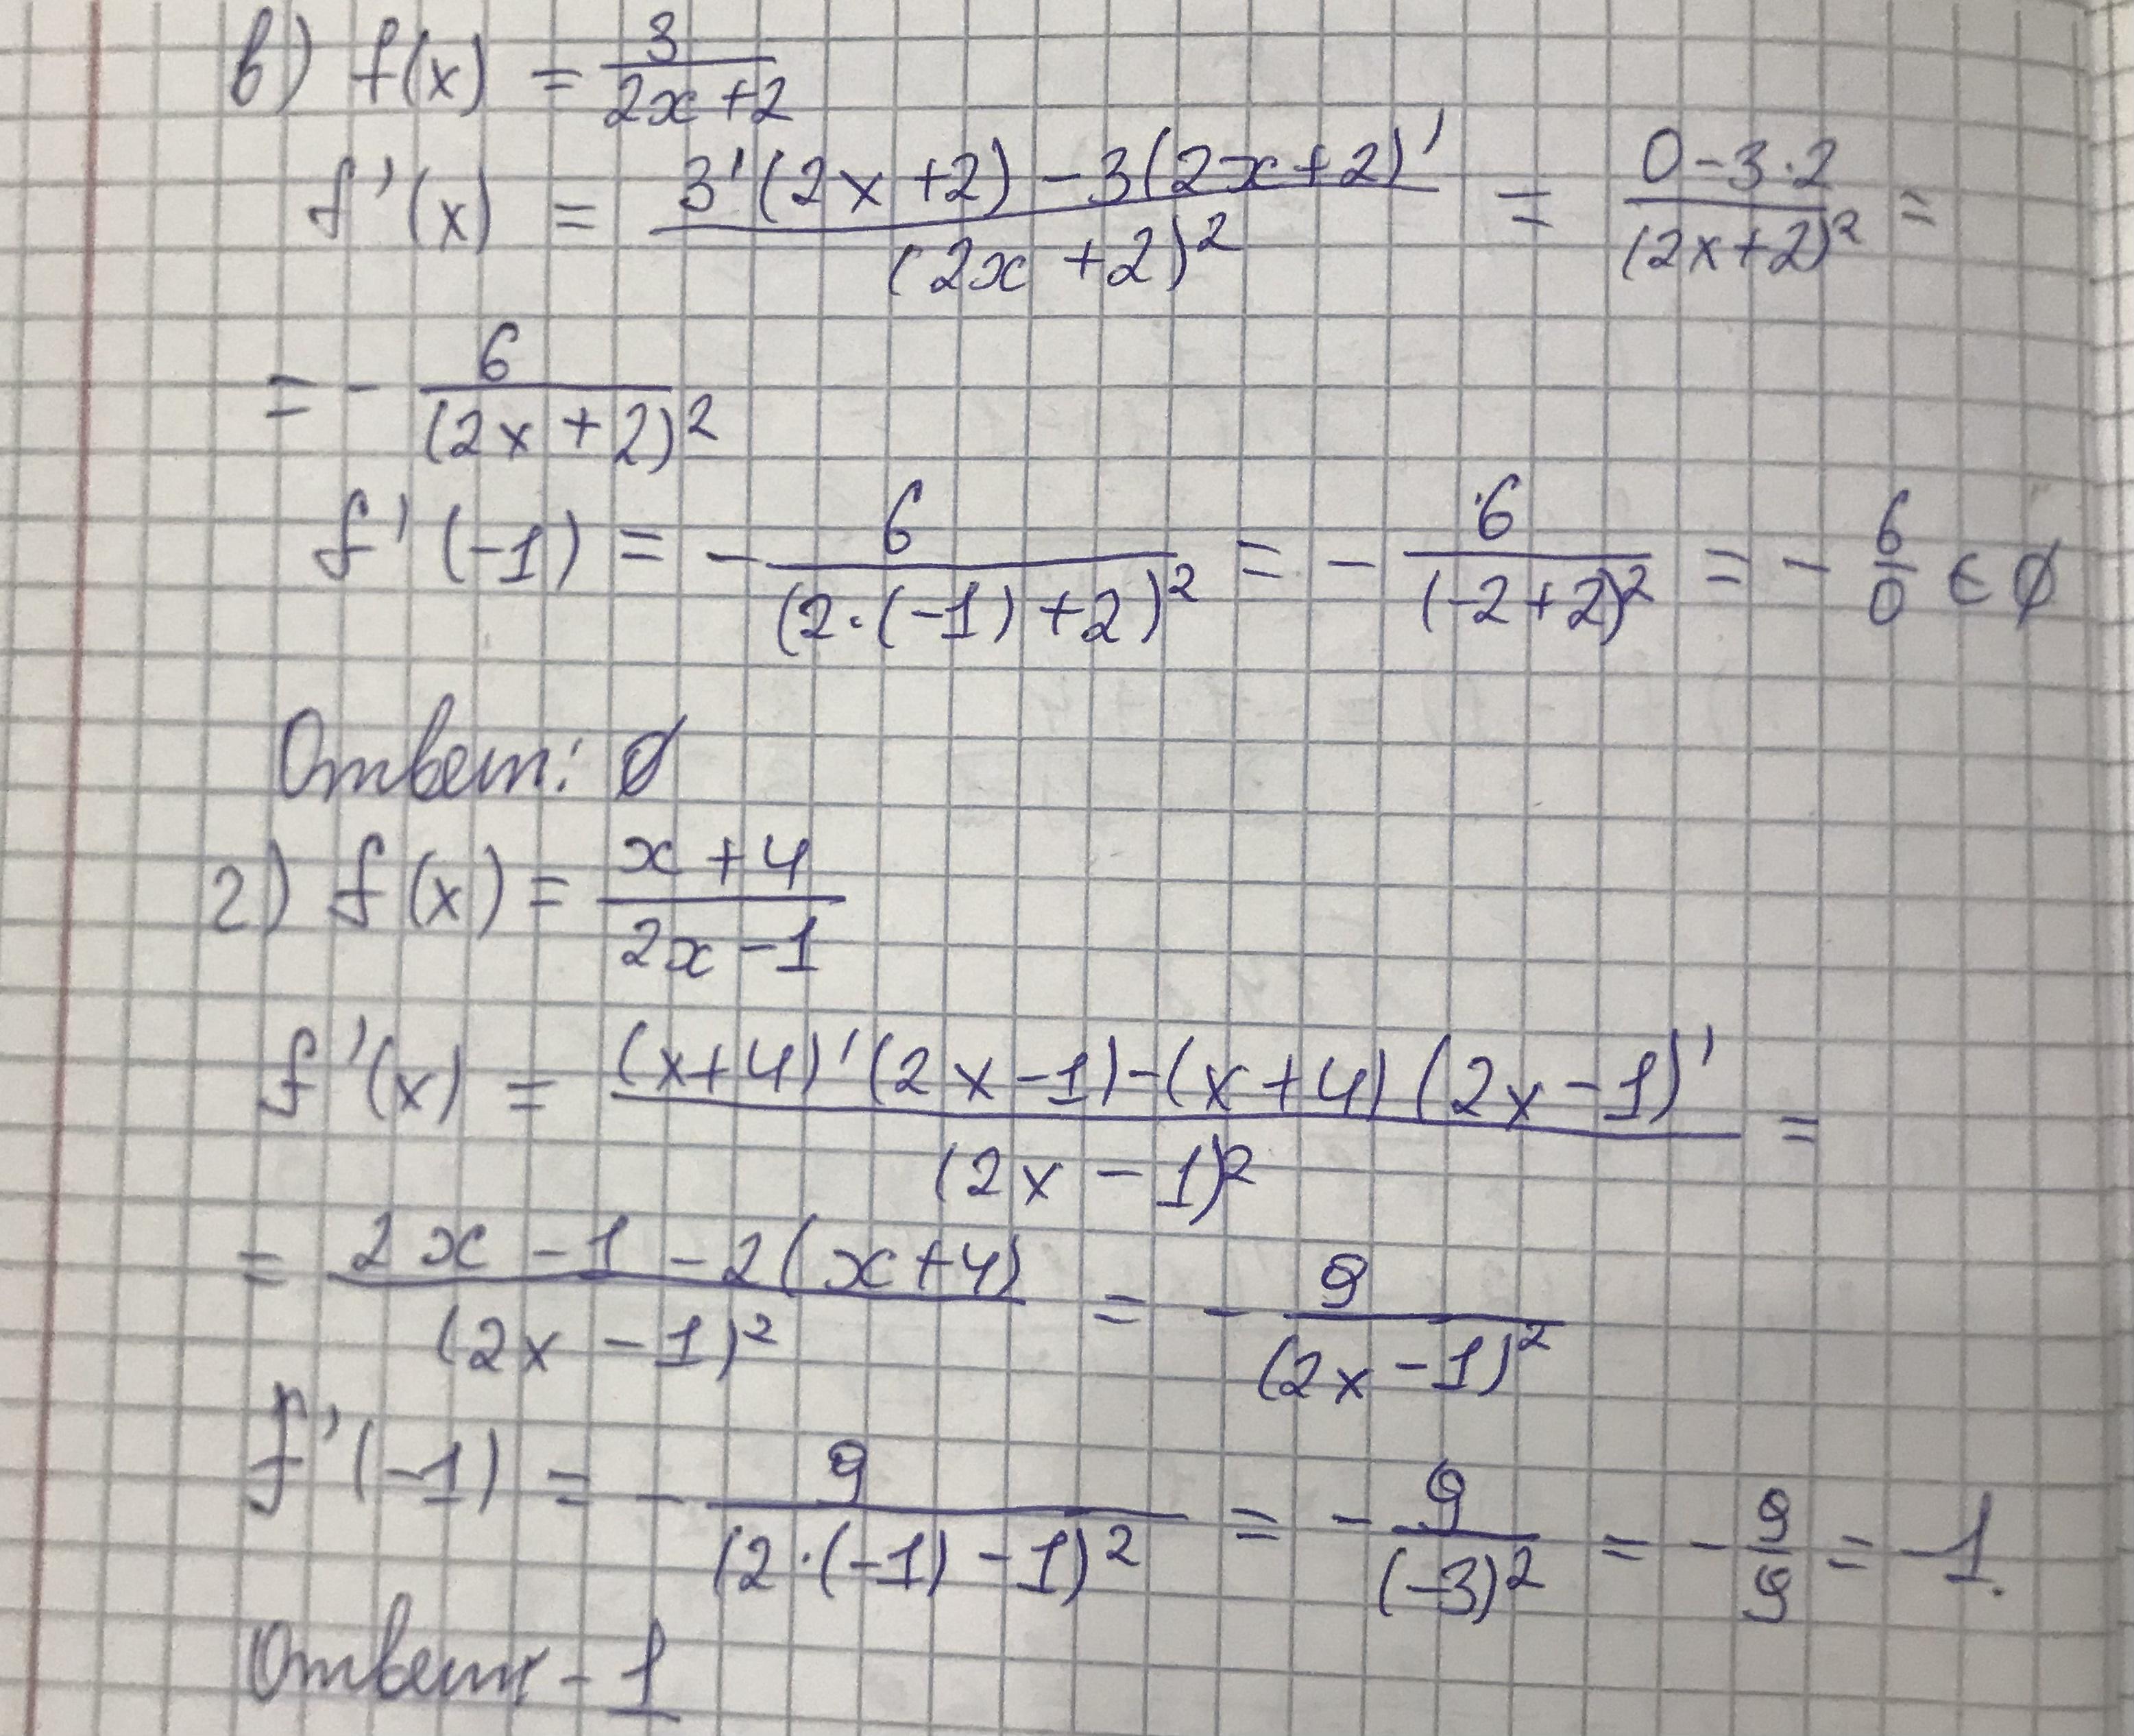 в) f(x) = 3/(2x+2)
f'(x) = (3'(2x+2) - 3(2x+2)')/(2x+2)² = (0-3·2)/(2x+2)² =
= - 6/(2x+2)²
f'(-1) = - 6/(2·(-1)+2)² = - 6/(-2+2)² = - 6/0 ∈ ∅
Ответ: ∅
г) f(x) = (x+4)/(2x-1)
f'(x) = ((x+4)'(2x-1)-(x+4)(2x-1)')/(2x-1)² =
= (2x-1-2(x+4))/(2x-1)² = - 9/(2x-1)²
f'(-1) = - 9/(2·(-1)-1)² = - 9/(-3)² = - 9/9 = -1.
Ответ: -1